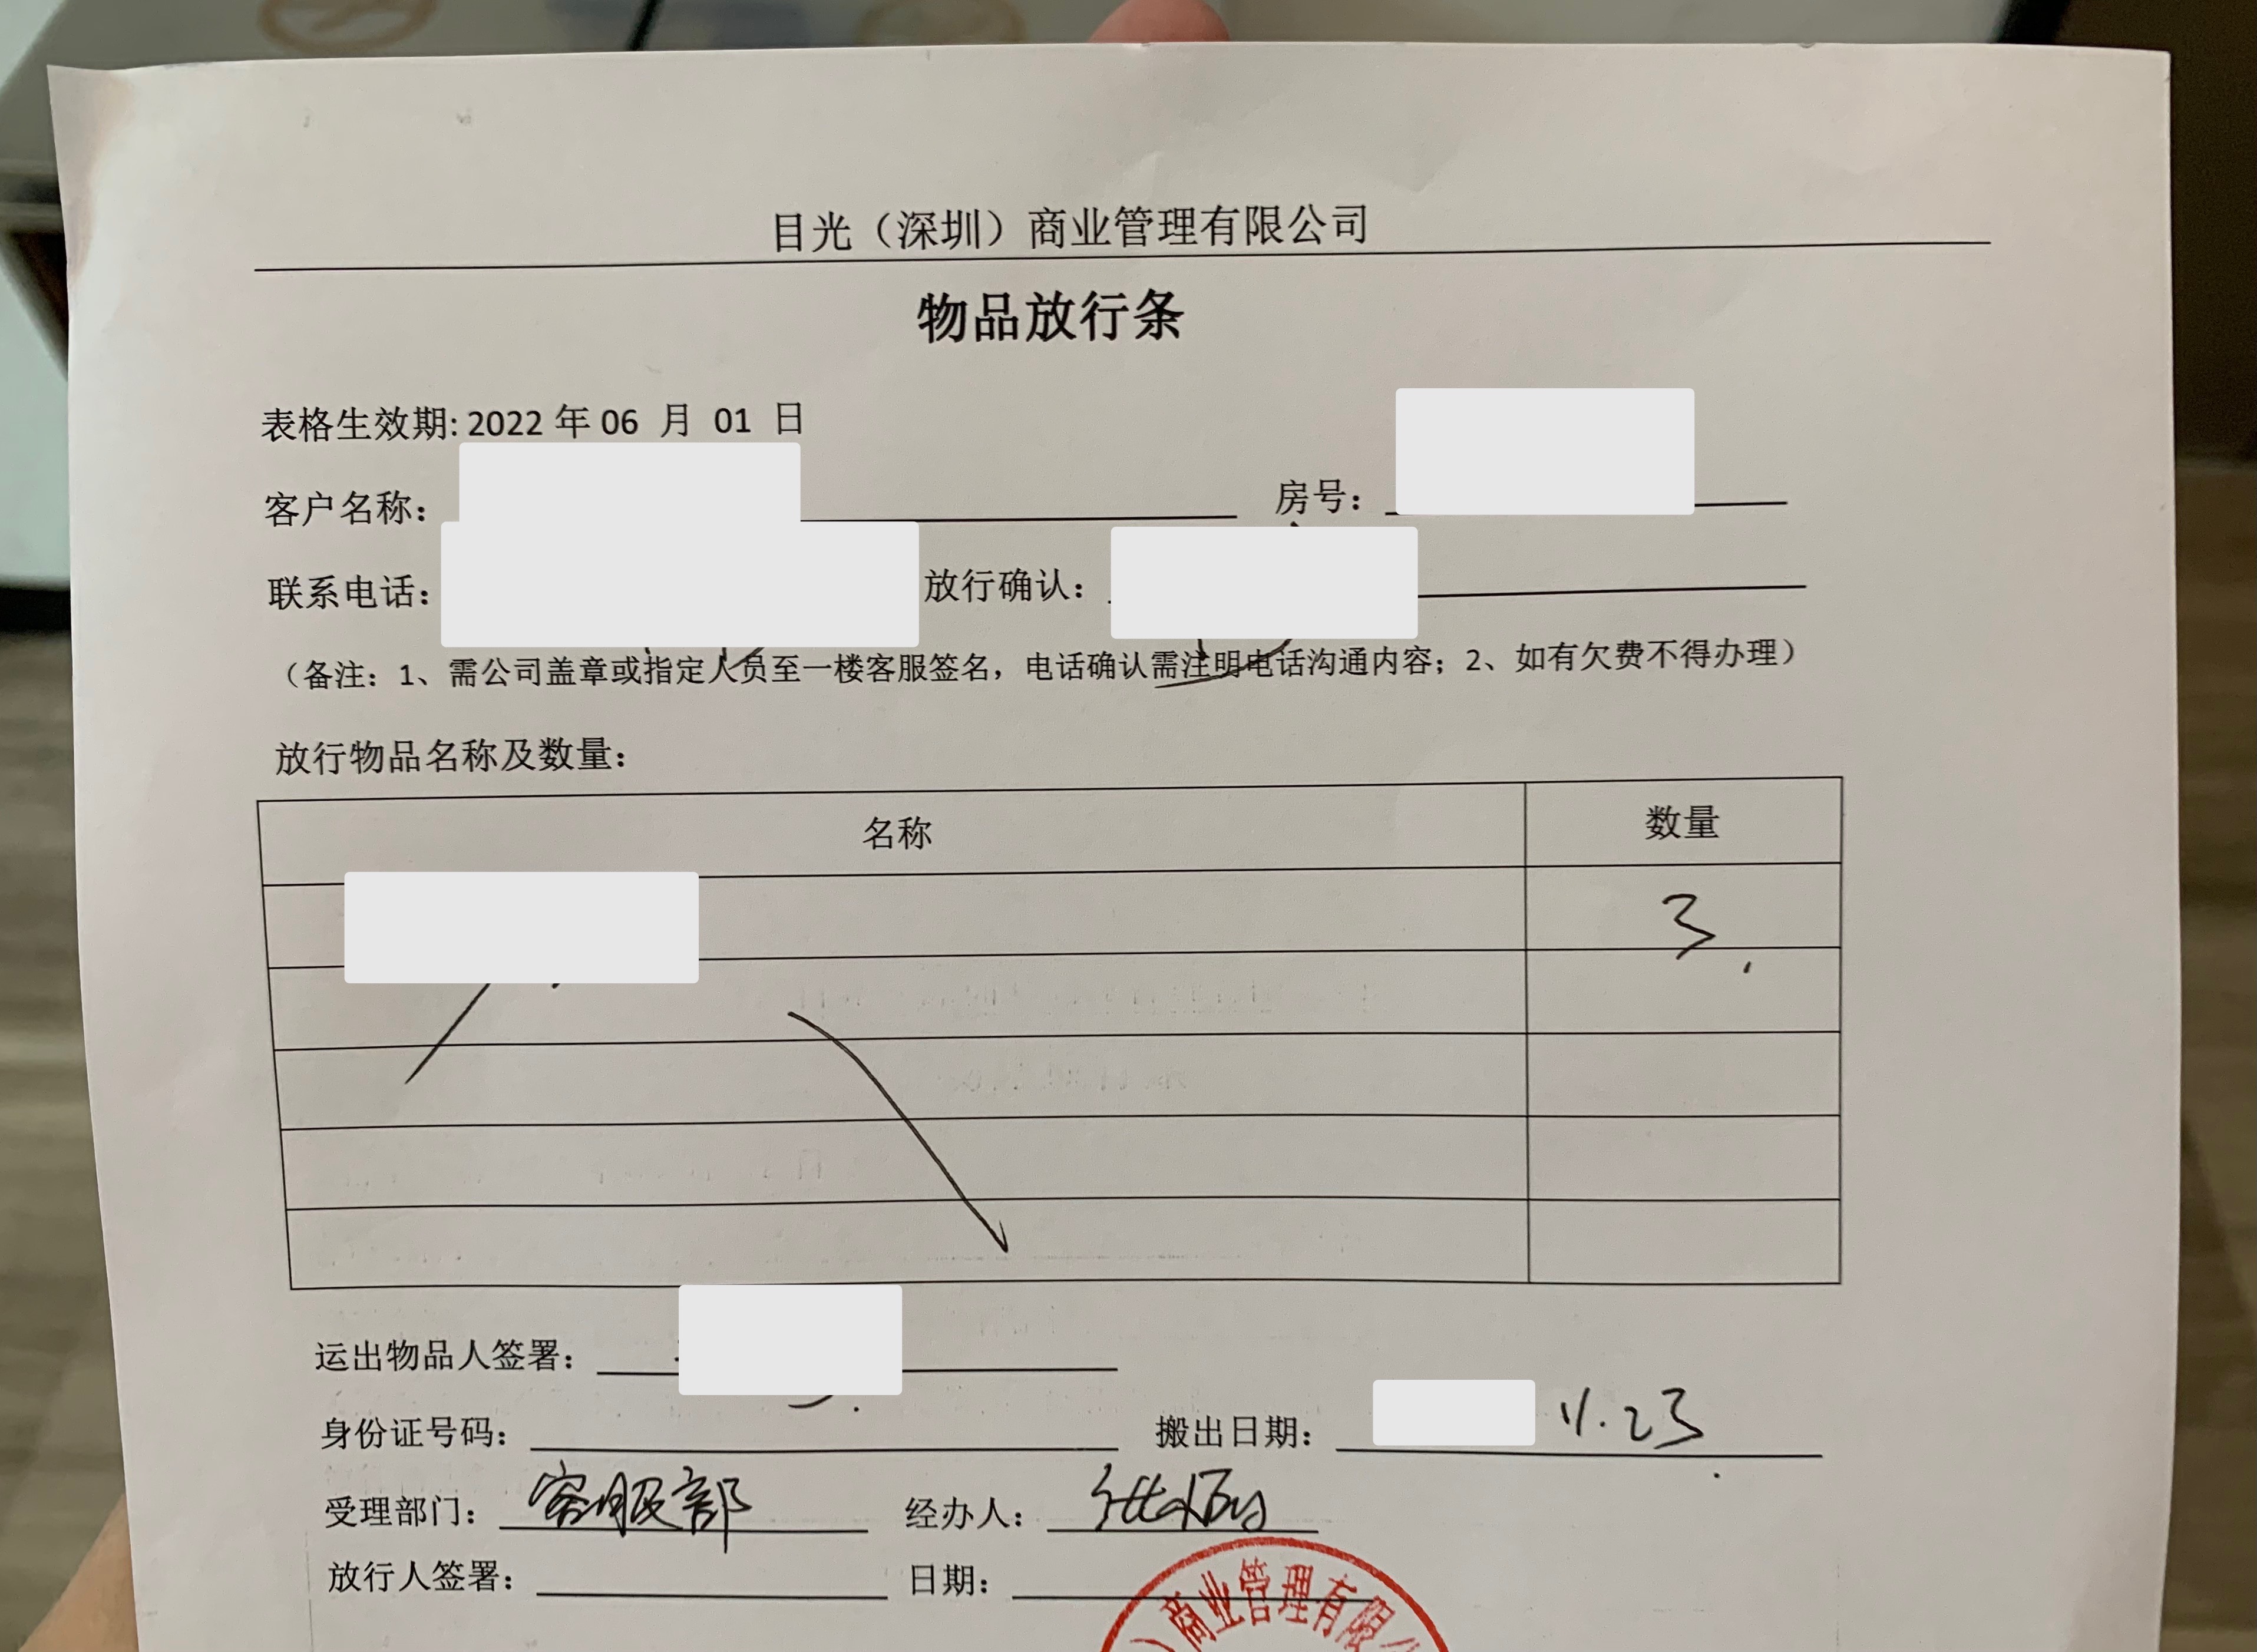 目光（深圳）商业管理有限公司
物品放行条
表格生效期: 2022 年 06 月 01 日
客户名称： 房号：
联系电话： 放行确认：
（备注：1、需公司盖章或指定人员至一楼客服签名，电话确认需注明电话沟通内容；2、如有欠费不得办理）
放行物品名称及数量：
名称 数量
3
运出物品人签署：
身份证号码： 搬出日期： 11.23
受理部门： 客服部 经办人：
放行人签署： 日期：
）商业管理有限